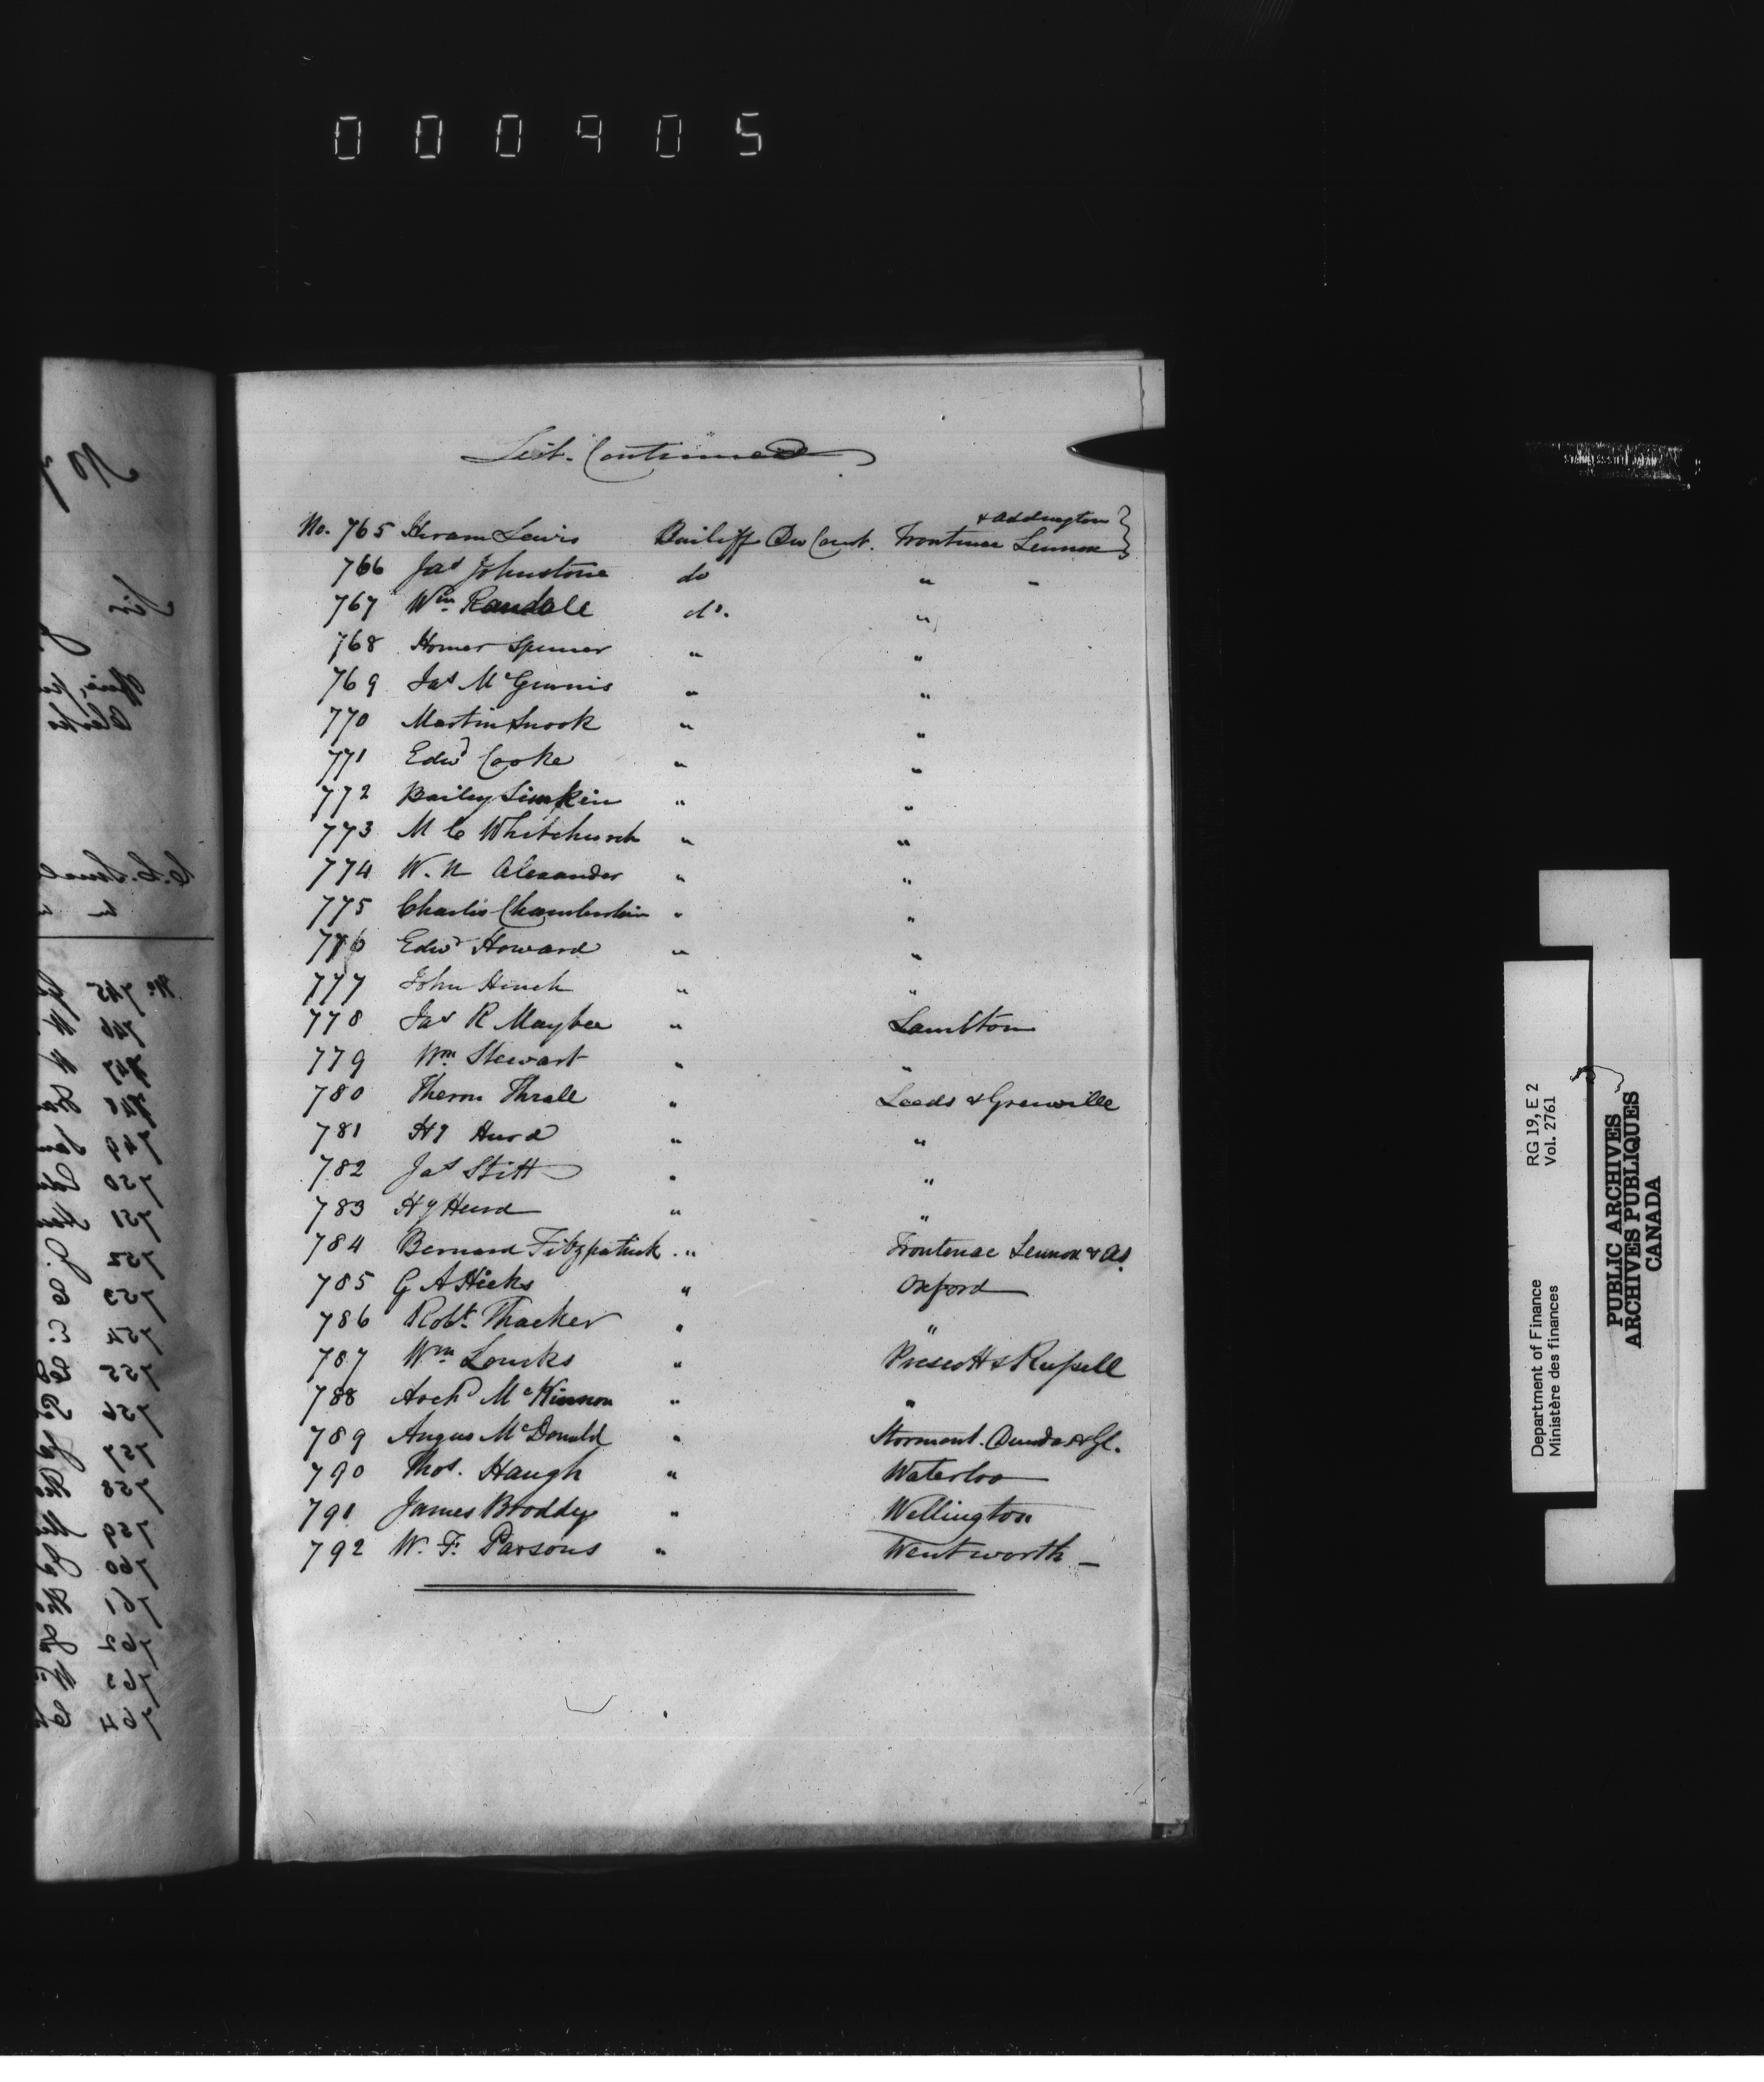 000405
List. Continued
& Addington }
No. 765 Hiram Lewis Bailiff Div Court. Frontenac Lennox }
766 Jas Johnstone do " "
767 Wm Randall do. "
768 Homer Spencer " "
769 Jas McGinnis " "
770 Martin Snook " "
771 Edwd Cooke " "
772 Bailey Simpkin " "
773 M C Whitchurch " "
774 W. N Alexander " "
775 Charles Chamberlain " "
776 Edwd Howard " "
777 John Hinch " "
778 Jas R Maybee " Lambton
779 Wm Stewart " "
780 Theron Thrall " Leeds & Grenville
781 Hy Hurd " "
782 Jas Stitt " "
783 Hy Hurd " "
784 Bernard Fitzpatrick " Frontenac Lennox & Ad.
785 G A Hicks " Oxford
786 Robt. Thacker " "
787 Wm Loucks " Prescott & Russell
788 Archd McKinnon " "
789 Angus McDonald " Stormont. Dundas & Gl.
790 Thos. Haugh " Waterloo
791 James Broddy " Wellington
792 W. F. Parsons " Wentworth
No 7
Sir
No. 745
746
747
748
749
750
751
752
753
754
755
756
757
758
759
760
761
762
763
764
Department of Finance RG 19, E 2
Ministère des finances Vol. 2761
PUBLIC ARCHIVES
ARCHIVES PUBLIQUES
CANADA